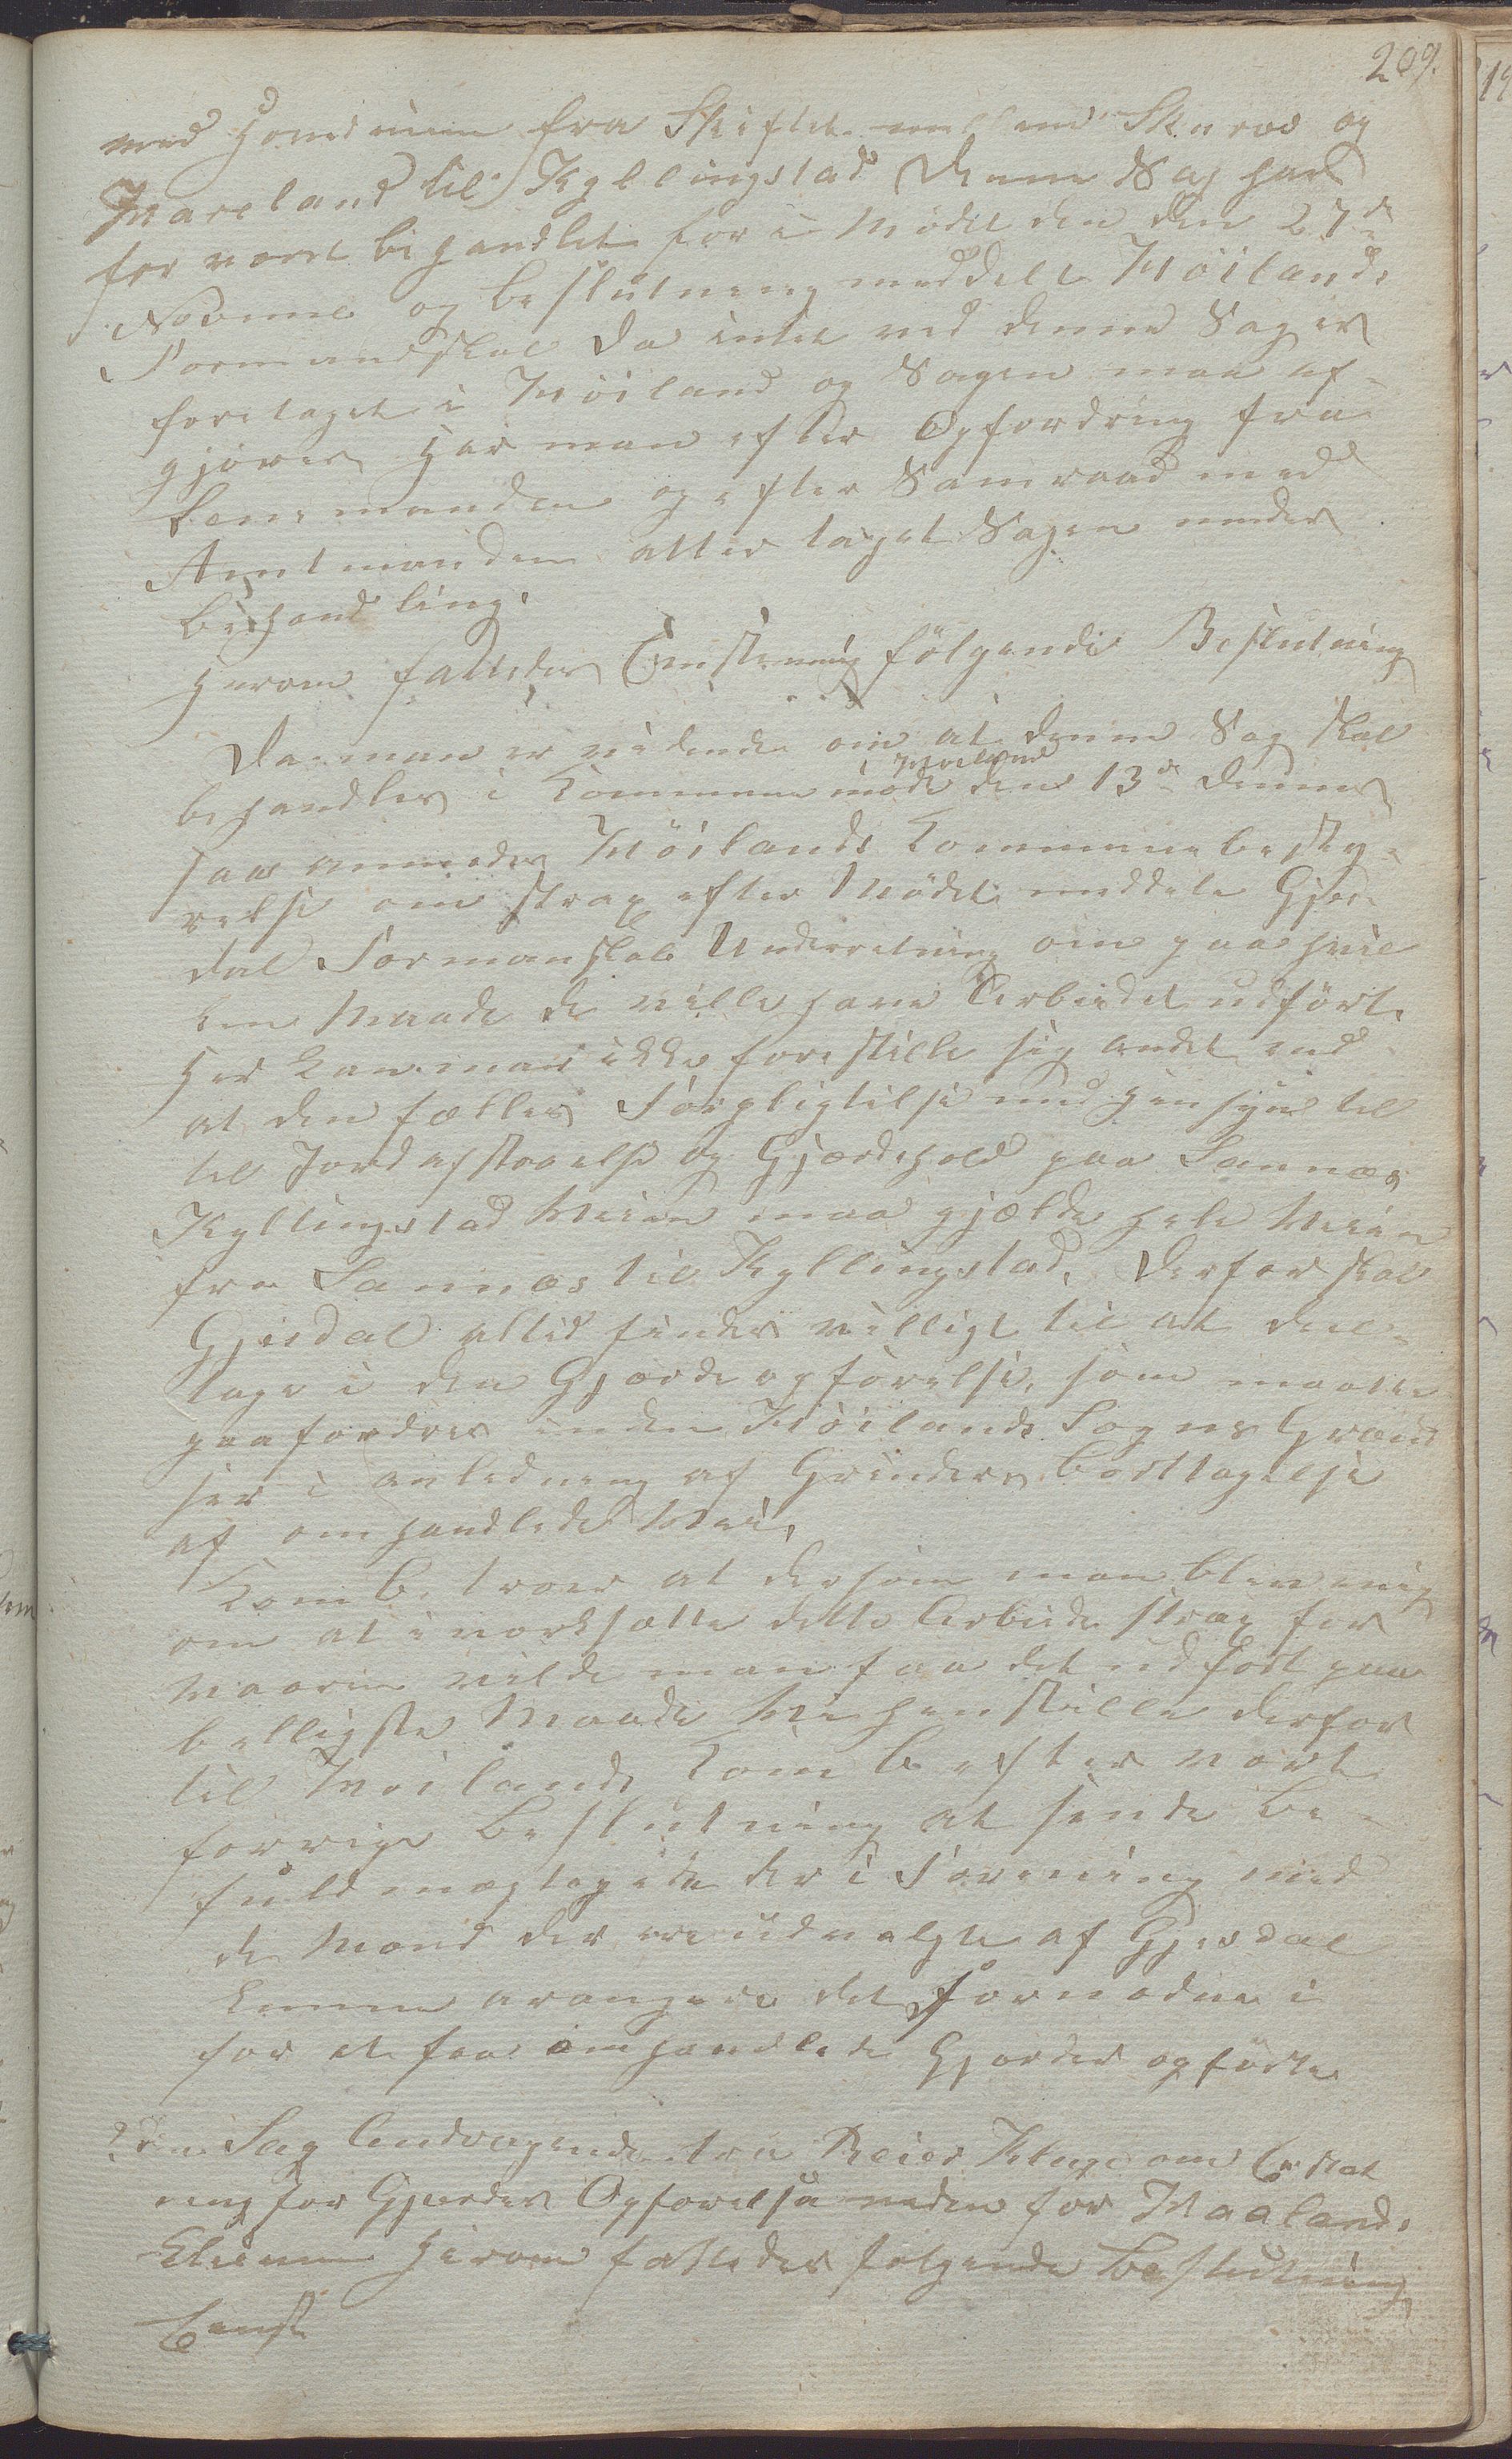 209.
med Hovedveien fra Skiftet mellem Skurve og
Mareland til Kyllingstad Denne Sag har
før været behandlet her i Mødet den den 27de
Novemb og Beslutning meddelt Höilands
Formandskab Da intet ved denne Sag er
foretaget i Höiland og Sagen maa af¬
gjøres har man efter Opfordring fra
Lensmanden og efter Samraad med
Amtmanden atter taget Sagen under
behandling.
Herom fattedes Eenstemig fölgende Beslutning
Da man er vidende om at denne Sag skal
behandles i Kommunemöde i Höiland den 13de dennes
saa anmodes Höilands Kommunebesty¬
relse om strax efter Mödet meddele Gjes¬
dal Formanskab Underretning om paa hvil
ken Maade de ville have Arbeidet udfört.
Her kan man ikke forestille sig andet end
at den fælles Forpligtelse med hensyn til
til Jordafstaaelse og Gjærdehold paa Sannæs
Kyllingstad Veien maa gjælde hele Veien
fra Sannæs til Kyllingstad. Derfor skal
Gjesdal altid findes villigt til at deel¬
tage i den Gjærdeopförelse, som maatte
paafordres inden Höilands Sogns Grænd
ser i anledning af Grinders Borttagelse
af omhandlede Vei.
Kom B. troer at dersom man blev enig
om at iværksætte dette Arbeide strax for
Vaaren vilde man faa det udfört paa
belligste Maade Vi henstille derfor
til Höilands Kom B. efter vort
forrige Beslutning at sende Be¬
fuldmægtigede der i Forening med
de Mænd der ere udvalgte af Gjesdal
kunne arangere det Fornødne i
for at faa omhandlede Gjærder opförte
2den Sag Andragende fra Reier Kluge om Erstat
ning for Gjerders Opförelse neden for Maalands
Kleiven Herom fattedes fölgende Beslutning
Eenst